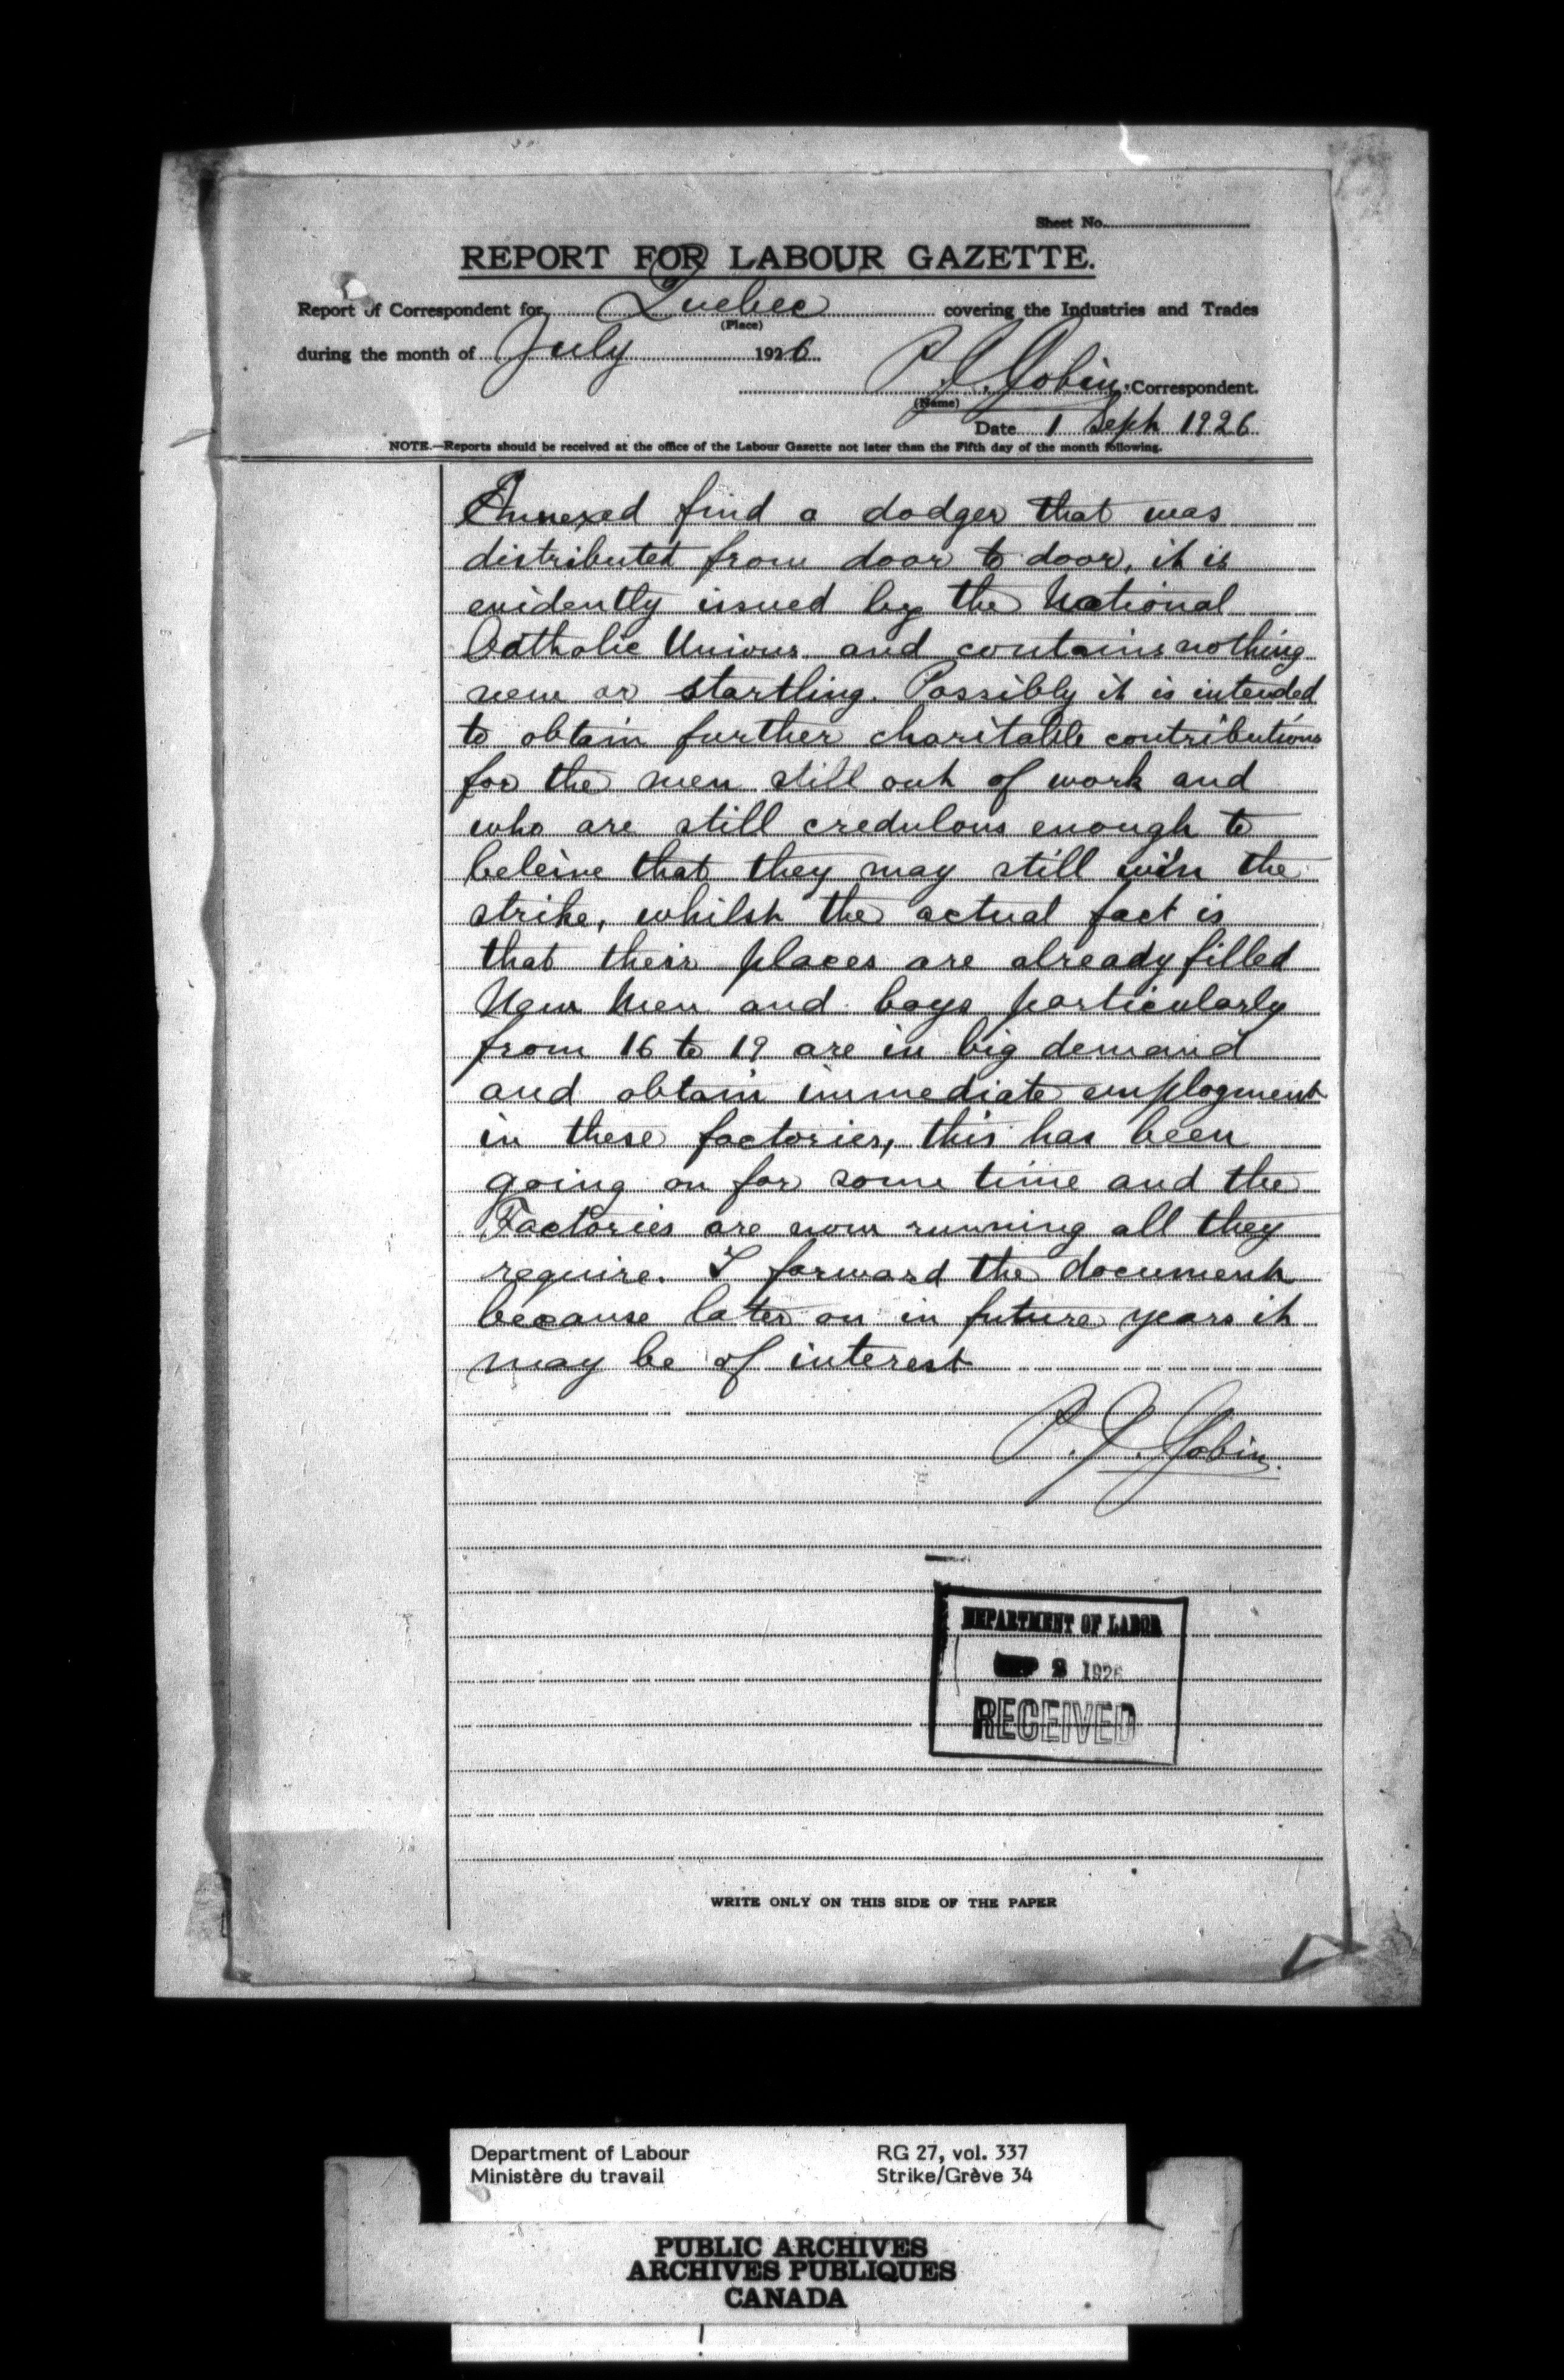 Sheet No.
REPORT FOR LABOUR GAZETTE.
Report of Correspondent for Quebec covering the Industries and Trades
(Place)
during the month of July 1926
P. J. Jobin, Correspondent.
(Name)
Date 1 Sept 1926
NOTE.—Reports should be received at the office of the Labour Gazette not later than the Fifth day of the month following.
Annexed find a dodger that was
distributed from door to door, it is
evidently issued by the National
Catholic Unions and contains nothing
new or startling. Possibly it is intended
to obtain further charitable contributions
for the men still out of work and
who are still credulous enough to
beleive that they may still win the
strike, whilst the actual fact is
that their places are already filled
New Men and boys particularly
from 16 to 19 are in big demand
and obtain immediate employment
in these factories, this has been
going on for some time and the
Factories are now running all they
require. I forward the document
because later on in future years it
may be of interest
P. J. Jobin.
DEPARTMENT OF LABOR
SEP 2 1926
RECEIVED
WRITE ONLY ON THIS SIDE OF THE PAPER
Department of Labour RG 27, vol. 337
Ministère du travail Strike/Grève 34
PUBLIC ARCHIVES
ARCHIVES PUBLIQUES
CANADA